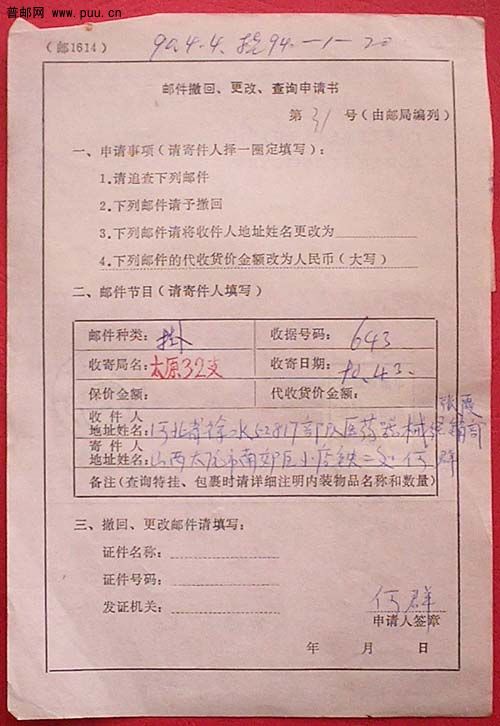 普邮网 www.puu.cn
(邮1614)
邮件撤回、更改、查询申请书
第 31 号(由邮局编列)
一、申请事项(请寄件人择一圈定填写):
1.请追查下列邮件
2.下列邮件请予撤回
3.下列邮件请将收件人地址姓名更改为
4.下列邮件的代收货价金额改为人民币(大写)
二、邮件节目(请寄件人填写)
邮件种类: 掛 收据号码: 643
收寄局名: 太原32支 收寄日期:
保价金额: 代收货价金额:
收件人
地址姓名: 河北省徐水52817部队医药器械
寄件人
地址姓名: 山西太原市南郊区小店铁三处 何群
备注(查询特挂、包裹时请详细注明内装物品名称和数量)
三、撤回、更改邮件请填写:
证件名称:
证件号码:
发证机关:
何群
申请人签章
年 月 日